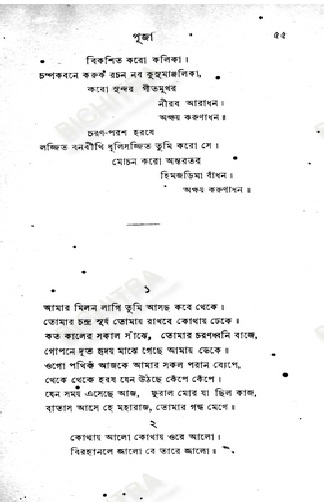 পূজা ৫৫
বিকশিত করো কলিকা॥
চম্পকবনে করুক রচন নব কুসুমাঞ্জলিকা,
করো সুন্দর গীতমুখর
নীরব আরাধন॥
অক্ষয় করুণাধন॥
চরণ-পরশ হরষে
লজ্জিত বনবীথি ধূলিসজ্জিত তুমি করো সে॥
মোচন করো অন্তরতর
হিমজড়িমা বাঁধন॥
অক্ষয় করুণাধন॥
১
আমার মিলন লাগি তুমি আসছ কবে থেকে॥
তোমার চন্দ্র সূর্য তোমায় রাখবে কোথায় ঢেকে॥
কত কালের সকাল সাঁঝে, তোমার চরণধ্বনি বাজে,
গোপনে দূত হৃদয় মাঝে গেছে আমায় ডেকে॥
ওগো পথিক আজকে আমার সকল পরান ব্যেপে,
থেকে থেকে হরষ যেন উঠছে কেঁপে কেঁপে।
যেন সময় এসেছে আজ, ফুরাল মোর যা ছিল কাজ,
বাতাস আসে হে মহারাজ, তোমার গন্ধ মেখে॥
২
কোথায় আলো কোথায় ওরে আলো।
বিরহানলে জ্বালো রে তারে জ্বালো॥